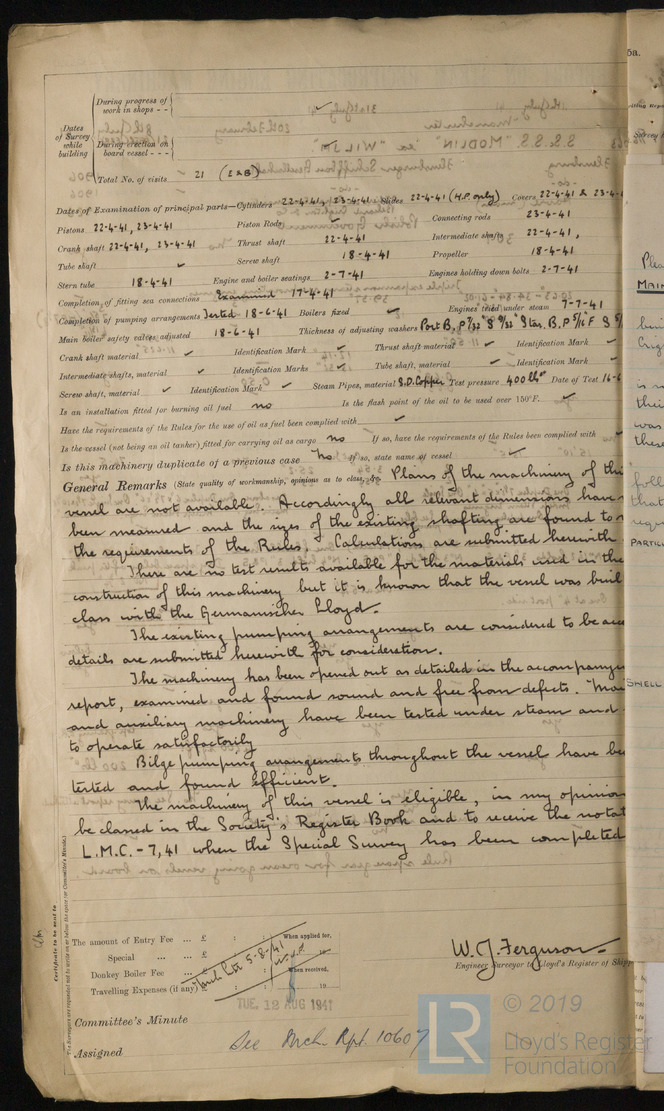 During progress of work in shops - -
Dates of Survey while building
During erection on board vessel - - -
Total No. of visits 21 (E&B)
Dates of Examination of principal parts—Cylinders 22-4-41, 23-4-41 Slides 22-4-41 (H.P. only) Covers 22-4-41 & 23-4-
Pistons 22-4-41, 23-4-41 Piston Rods ✓ Connecting rods 23-4-41
Crank shaft 22-4-41, 23-4-41 Thrust shaft 22-4-41 Intermediate shafts 22-4-41,
Tube shaft ✓ Screw shaft 18-4-41 Propeller 18-4-41
Stern tube 18-4-41 Engine and boiler seatings 2-7-41 Engines holding down bolts 2-7-41
Completion of fitting sea connections Examined 17-4-41
Completion of pumping arrangements Tested 18-6-41 Boilers fixed ✓ Engines tried under steam 7-7-41
Main boiler safety valves adjusted 18-6-41 Thickness of adjusting washers Port B. P 7/32" S 9/32" Star. B. P 5/16" F S
Crank shaft material ✓ Identification Mark ✓ Thrust shaft material ✓ Identification Mark ✓
Intermediate shafts, material ✓ Identification Marks ✓ Tube shaft, material ✓ Identification Mark ✓
Screw shaft, material ✓ Identification Mark ✓ Steam Pipes, material S.D. Copper Test pressure 400 lbs Date of Test 16-6
Is an installation fitted for burning oil fuel no Is the flash point of the oil to be used over 150°F. ✓
Have the requirements of the Rules for the use of oil as fuel been complied with ✓
Is the vessel (not being an oil tanker) fitted for carrying oil as cargo no If so, have the requirements of the Rules been complied with ✓
Is this machinery duplicate of a previous case No If so, state name of vessel ✓
General Remarks (State quality of workmanship, opinions as to class, &c. Plans of the machinery of this
vessel are not available. Accordingly all relevant dimensions have
been measured and the sizes of the existing shafting are found to
the requirements of the Rules. Calculations are submitted herewith
There are no test results available for the materials used in the
construction of this machinery but it is known that the vessel was buil
class with the Germanischer Lloyd.
The existing pumping arrangements are considered to be acc
details are submitted herewith for consideration.
The machinery has been opened out as detailed in the accompanying
report, examined and found sound and free from defects. Main
and auxiliary machinery have been tested under steam and
to operate satisfactorily
Bilge pumping arrangements throughout the vessel have be
tested and found efficient.
The machinery of this vessel is eligible, in my opinion
be classed in the Society's Register Book and to receive the notat
L.M.C. - 7,41 when the Special Survey has been completed
Certificate to be sent to
The Surveyors are requested not to write on or below the space for Committee's Minute.
The amount of Entry Fee ... £ : : When applied for,
Special ... ... £ : : 19
Donkey Boiler Fee ... £ : : When received,
Travelling Expenses (if any) £ : : 19
5-8-41
TUE. 12 AUG 1941
W. J. Ferguson
Engineer Surveyor to Lloyd's Register of Shipp
Committee's Minute
Assigned
See Mch. Rpt. 10607
5a.
Plea
MAIN
PARTIC
SWELL
LR
© 2019
Lloyd's Register
Foundation